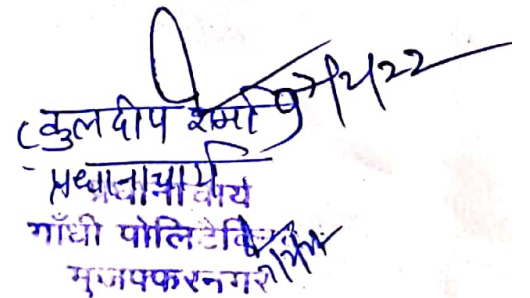 (कुलदीप शर्मा)
प्रधानाचार्य
प्रधानाचार्य
गाँधी पोलिटैक्निक
मुजफ्फरनगर